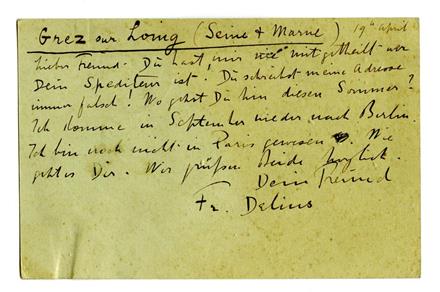 Grez sur Loing (Seine & Marne) 19th April
Lieber Freund - Du hast mir nie mitgetheilt wer
Dein Spediteur ist. Du schreibst meine Adresse
immer falsch! Wo gehst Du hin diesen Sommer?
Ich komme in September wieder nach Berlin.
Ich bin noch nicht in Paris gewesen. Wie
geht es Dir. Wir grüssen Beide herzlich.
Dein Freund
Fr. Delius